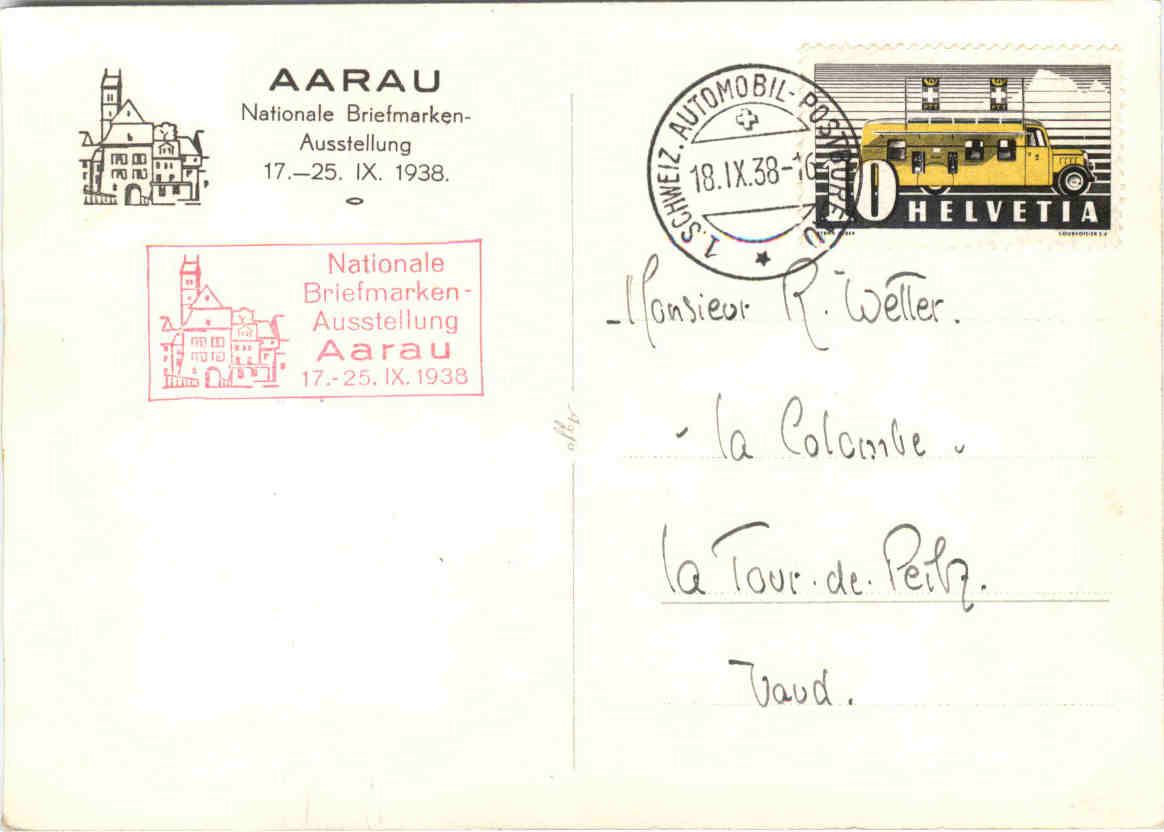 AARAU
Nationale Briefmarken-
Ausstellung
17.—25. IX. 1938.
Nationale
Briefmarken-
Ausstellung
Aarau
17.-25. IX. 1938
1. SCHWEIZ. AUTOMOBIL-POSTBUREAU
18.IX.38-16
HELVETIA
COURVOISIER S.A.
Monsieur R. Wetter.
la Colombe
la Tour-de-Peilz.
Vaud.